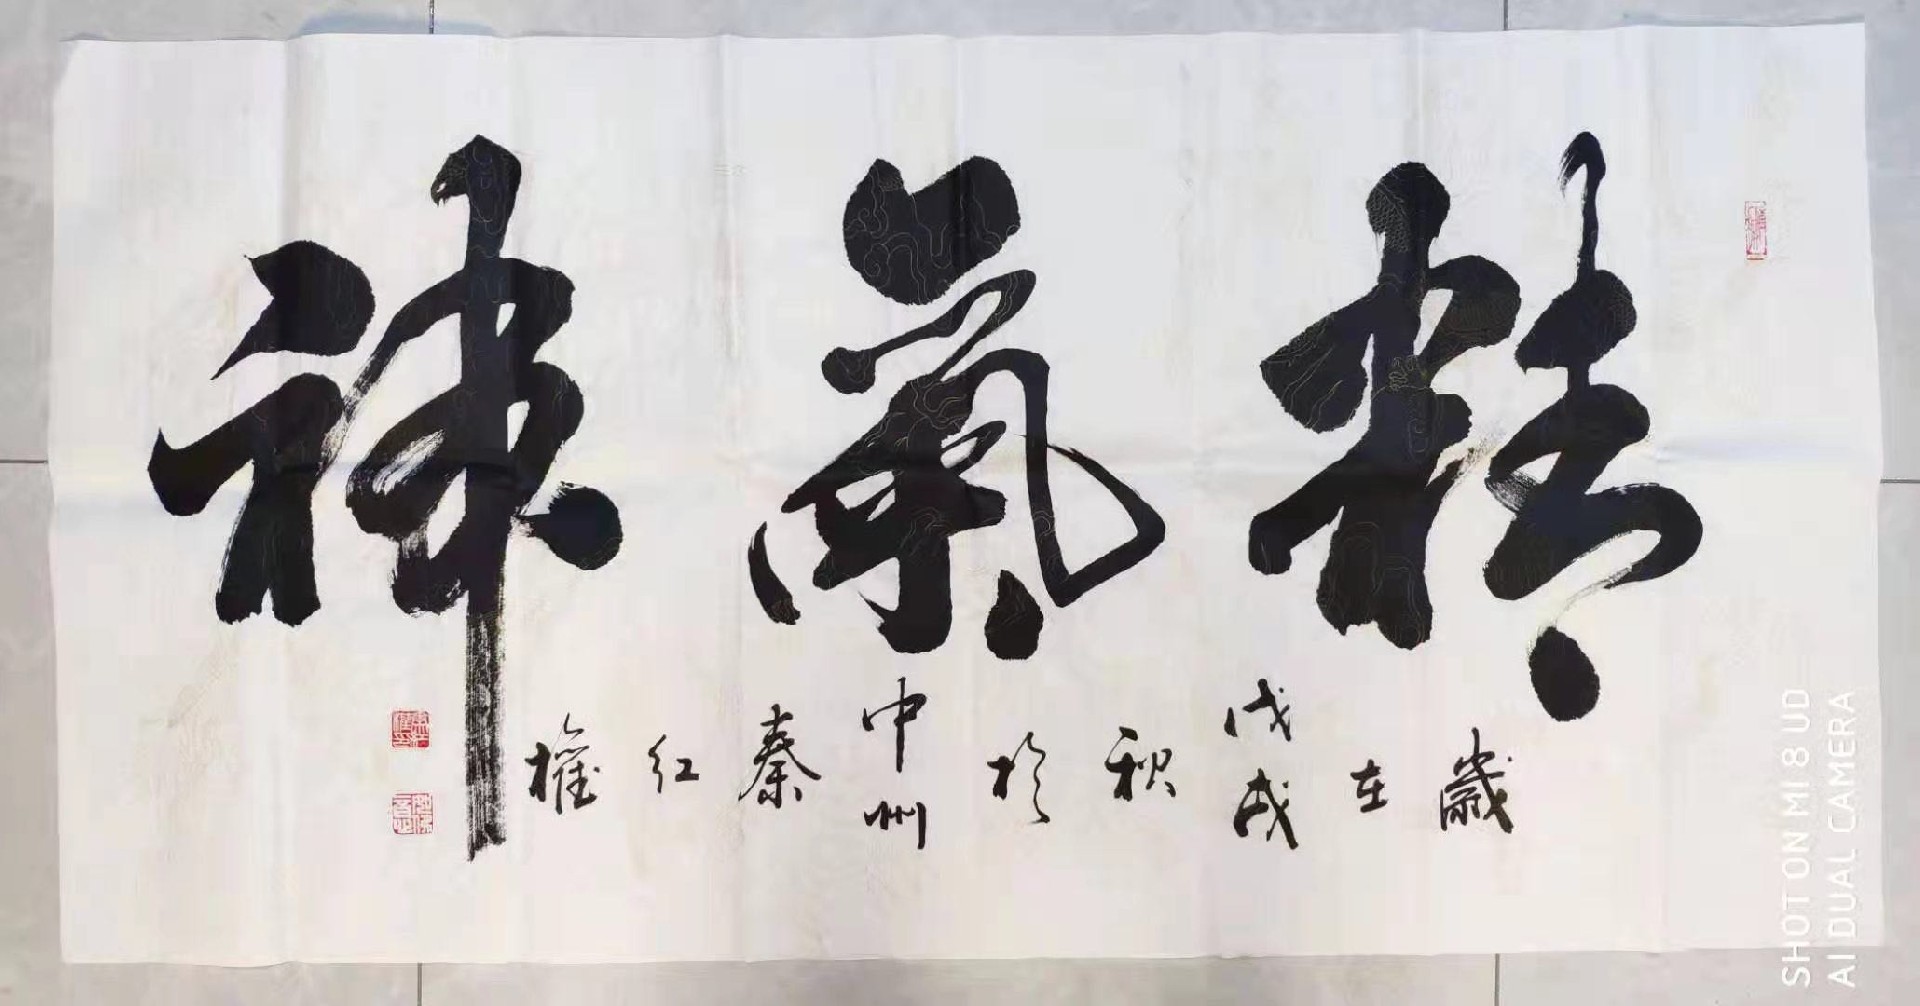 精氣神
歲在戊戌秋於中州秦红權
SHOT ON MI 8 UD
AI DUAL CAMERA